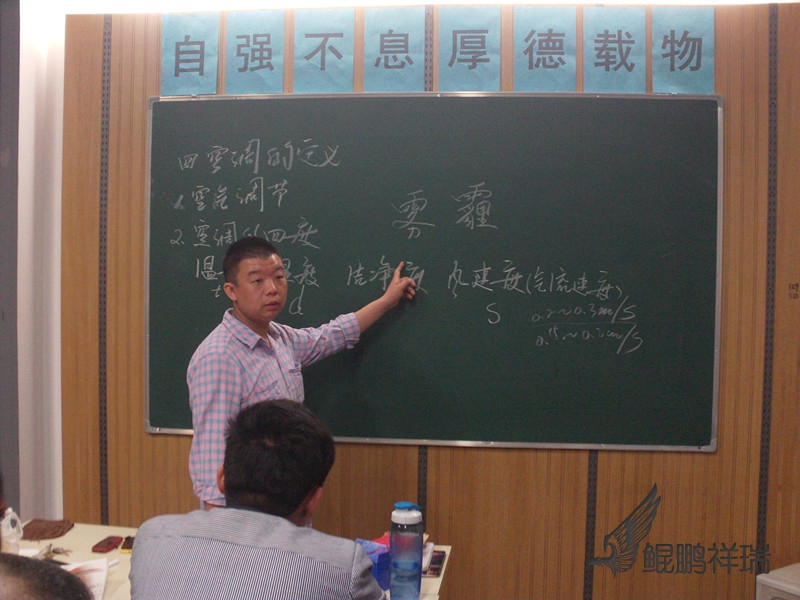 自强不息厚德载物
四空调的定义
1. 空气调节
2. 空调的四度
雾霾
温 湿度 洁净度 风速度(气流速度)
t d S 0.2~0.3m/S
0.15~0.2m/S
鲲鹏祥瑞